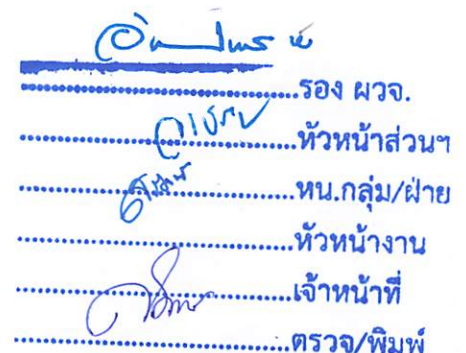 รอง ผวจ.
หัวหน้าส่วนฯ
หน.กลุ่ม/ฝ่าย
หัวหน้างาน
เจ้าหน้าที่
ตรวจ/พิมพ์